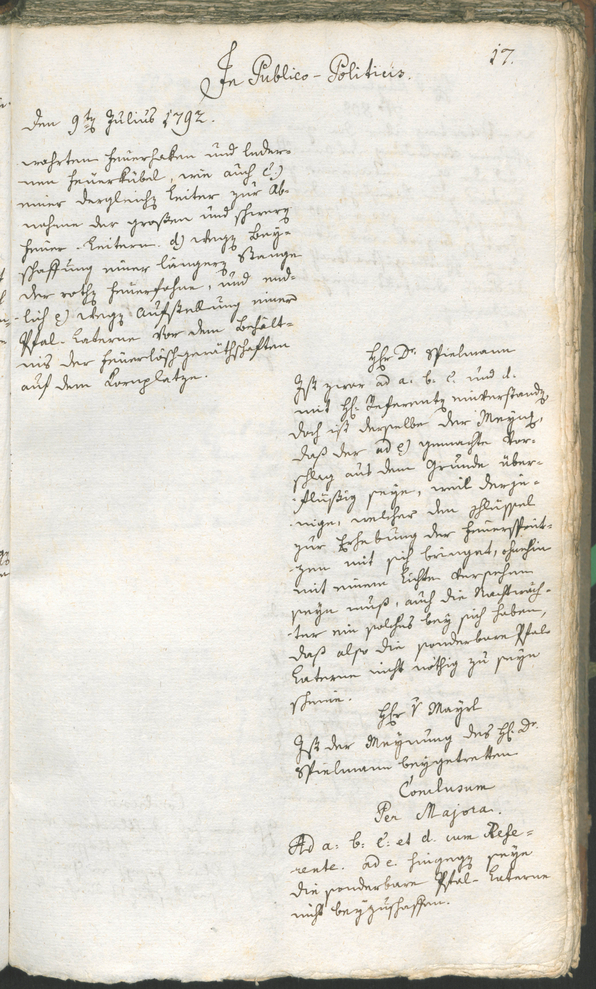 17.
In Publico-Politicis.
den 9ten Julius 1792.
wahrten Feuerhaken und leder-
nen Feuerkübel, wie auch c.)
einer dergleichen Leiter zur Ab-
nahme der großen und schweren
Feuer-Leitern. d) wegen Bey-
schaffung einer längern Stange
der rothen Feuerfahne, und end-
lich e) wegen Aufstellung einer
Pfal-Laterne vor dem Behält-
nis der Feuerlöschgeräthschaften
auf dem Kornplatze.
Hr Dr. Spielmann
Ist zwar ad a. b. c. und d.
mit H: Referenten einverstanden,
doch ist derselbe der Meynung,
daß der ad e) gemachte Vor-
schlag aus dem Grunde über-
flüßig seye, weil derje-
nige, welcher den Schlüssel
zur Erhebung der Feuerspritz-
zen mit sich bringet, ohnehin
mit einem Lichte versehen
seyn muß, auch die Nachtwäch-
ter ein solches bey sich haben,
daß also die sonderbare Pfal-
Laterne nicht nöthig zu seyn
scheine.
Hr v Mayrl
Ist der Meynung des H: Dr.
Spielmann beygetretten
Conclusum
Per Majora.
Ad a: b: c: et d. cum Refe-
rente. ad e. hingegen seye
die sonderbare Pfal-Laterne
nicht beyzuschaffen.